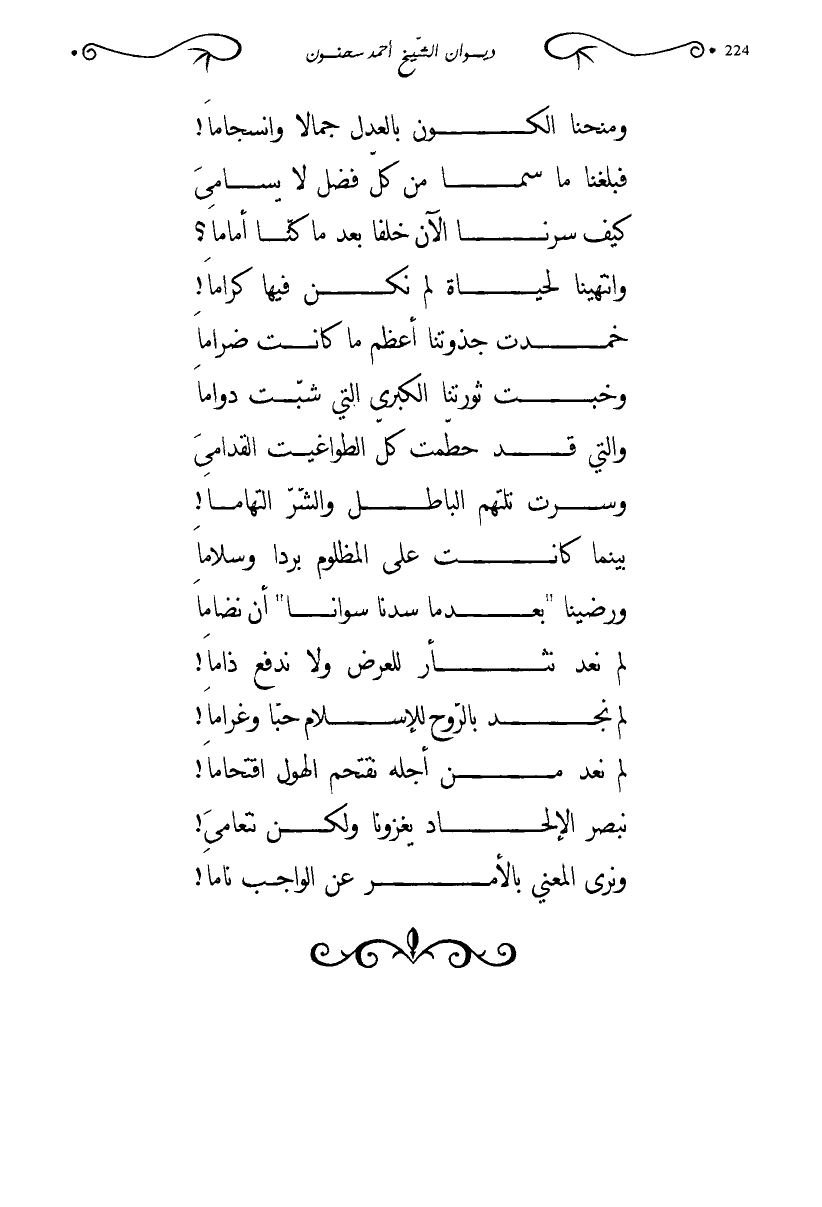 ديوان الشّيخ أحمد سحنون 224
ومنحنا الكون بالعدل جمالا وانسجامَا!
فبلغنا ما سما من كلّ فضل لا يسامىَ
كيف سرنا الآن خلفا بعد ما كنّا أمامَا؟
وانتهينا لحياة لم نكن فيها كرامَا!
خمدت جذوتنا أعظم ما كانت ضرامَا
وخبت ثورتنا الكبرى التي شبّت دوامَا
والتي قد حطّمت كلّ الطواغيت القدامىَ
وسرت تلتهم الباطل والشّرّ التهامَا!
بينما كانت على المظلوم بردا وسلامَا
ورضينا "بعدما سدنا سوانا" أن نضامَا
لم نعد نثأر للعرض ولا ندفع ذامَا!
لم نجد بالرّوح للإسلام حبّا وغرامَا!
لم نعد من أجله نقتحم الهول اقتحامَا!
نبصر الإلحاد يغزونا ولكن نتعامىَ!
ونرى المعني بالأمر عن الواجب نامَا!